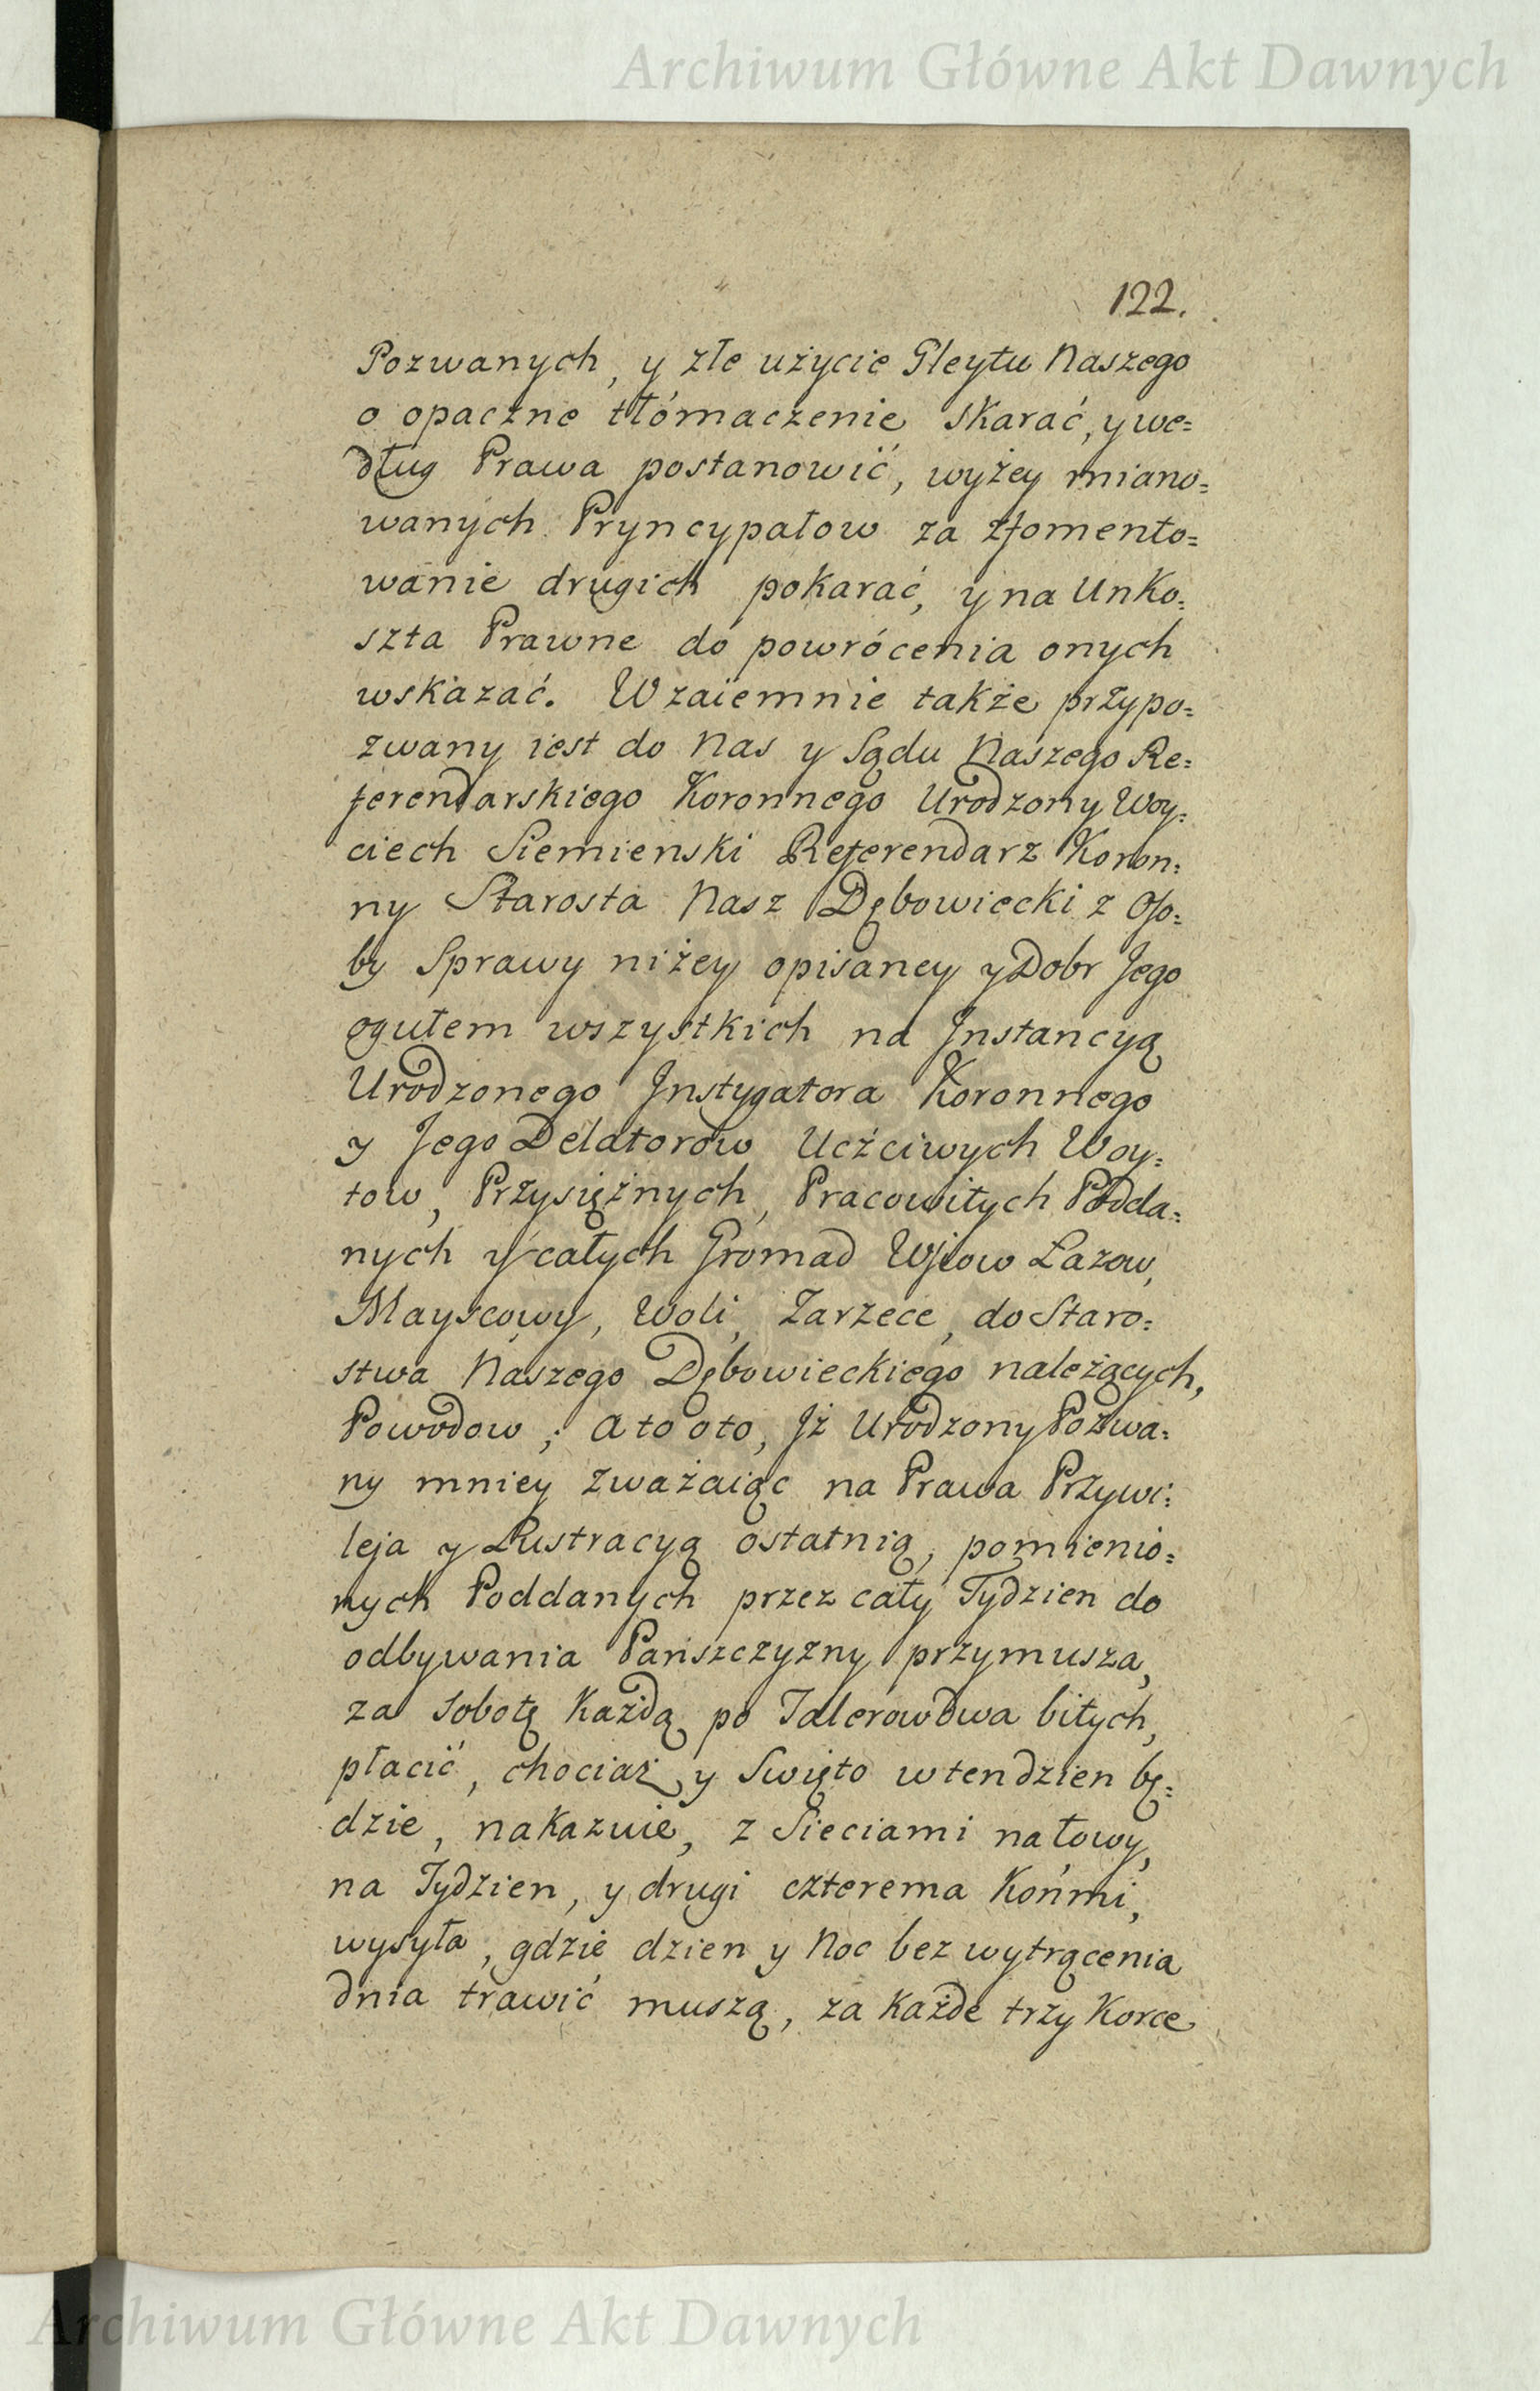 Archiwum Główne Akt Dawnych
122.
Pozwanych, y złe użycie Gleytu Naszego
o opaczne tłómaczenie skarać, y we=
dług Prawa postanowić, wyżey miano=
wanych Pryncypałow za zfomento=
wanie drugich pokarać, y na Unko=
szta Prawne do powrócenia onych
wskazać. Wzaiemnie także przypo=
zwany iest do Nas y Sądu Naszego Re=
ferendarskiego Koronnego Urodzony Woy=
ciech Siemienski Referendarz Koron=
ny Starosta Nasz Dębowiecki z Oso=
by Sprawy niżey opisaney y Dobr Jego
ogułem wszystkich na Jnstancyą
Urodzonego Jnstygatora Koronnego
y Jego Delatorow Uczciwych Woy=
tow, Przysiężnych, Pracowitych Podda=
nych y całych Gromad Wsiow Łazow,
Mayscowy, Woli, Zarzece, do Staro=
stwa Naszego Dębowieckiego należących,
Powodow; a to oto, Jż Urodzony Pozwa=
ny mniey zważaiąc na Prawa Przywi=
leja y Lustracyą ostatnią, pomienio=
nych Poddanych przez cały Tydzien do
odbywania Pańszczyzny przymusza,
za sobotę Każdą po Talerow dwa bitych,
płacić, chociaż y Swięto w ten dzien bę=
dzie, nakazuie, z Sieciami na łowy,
na Tydzien, y drugi czterema Końmi,
wysyła, gdzie dzien y Noc bez wytrącenia
dnia trawić muszą, za Każde trzy Korce
Archiwum Główne Akt Dawnych